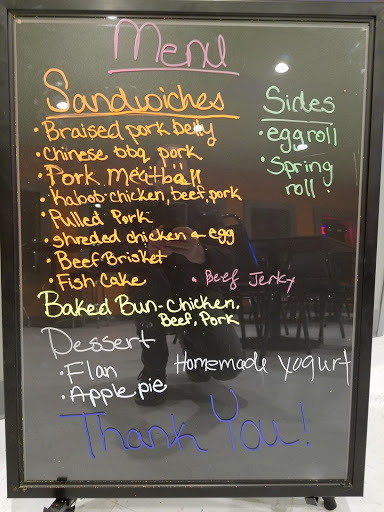 Menu
Sandwiches
• Braised pork belly
• Chinese bbq pork
• Pork Meatball
• Kabob-chicken, beef, pork
• Pulled Pork
• shreded chicken & egg
• Beef Brisket
• Fish Cake
• Beef Jerky
Baked Bun-Chicken,
Beef, Pork
Sides
• eggroll
• Spring
roll
Dessert
• Flan
• Apple pie
Homemade Yogurt
Thank You!